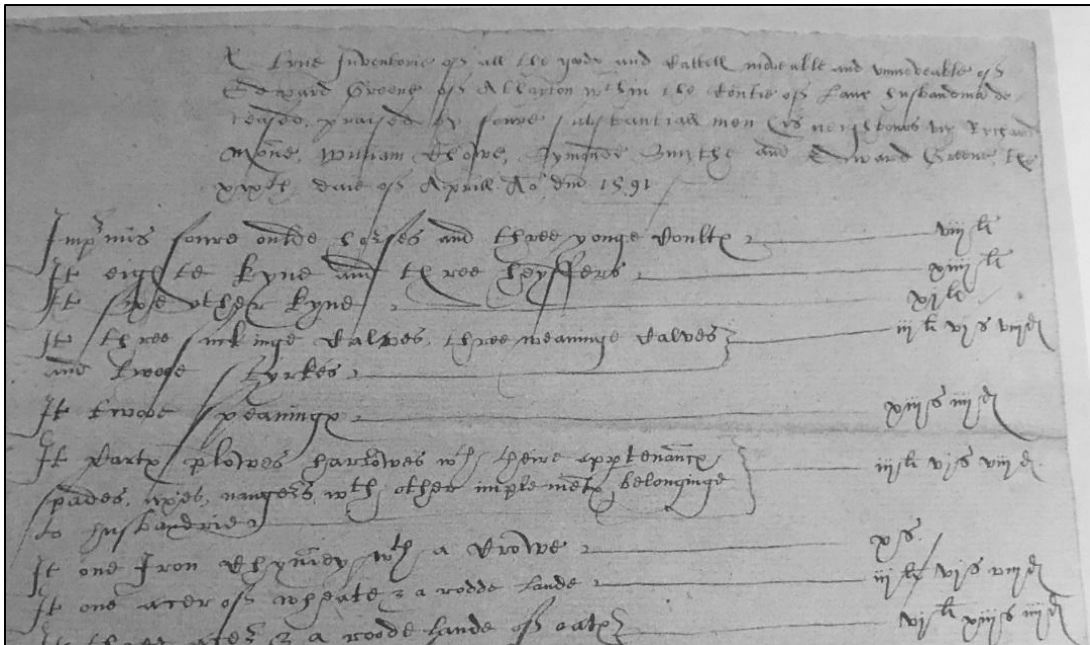 A trve Inventorie of all the goods and Cattell moveable and vnmoveable of
Edward Greene of Atharton wthin the Countie of Lanc husbandmã de
ceased, praised by foure substantiall men his neighbours viz Rychard
Mone, William Thowe, Symonde Smythe and Edward Greene, the
xixth daie of Aprill Ao dm 1591
Impmis foure oulde horses and three yonge Coultꝭ viij li
It eighte kyne and three heyffers xiiij li
It sixe other kyne xj li
It three suckinge Calves, three weaninge Calves iij li vj s viij d
and twooe styrkes
It twooe speaningꝭ xiij s iiij d
It Cartꝭ plowes harrowes wth theire apptenãncꝭ iij li vj s viij d
spades, axes, naugers, wth other implemẽtꝭ belonginge
to husbandrie
It one Iron Chymney wth a Crowe x s
It one acer of wheate & a rodde lande iij li vj s viij d
It three acers & a roode lande of oatꝭ vj li xiij s iiij d